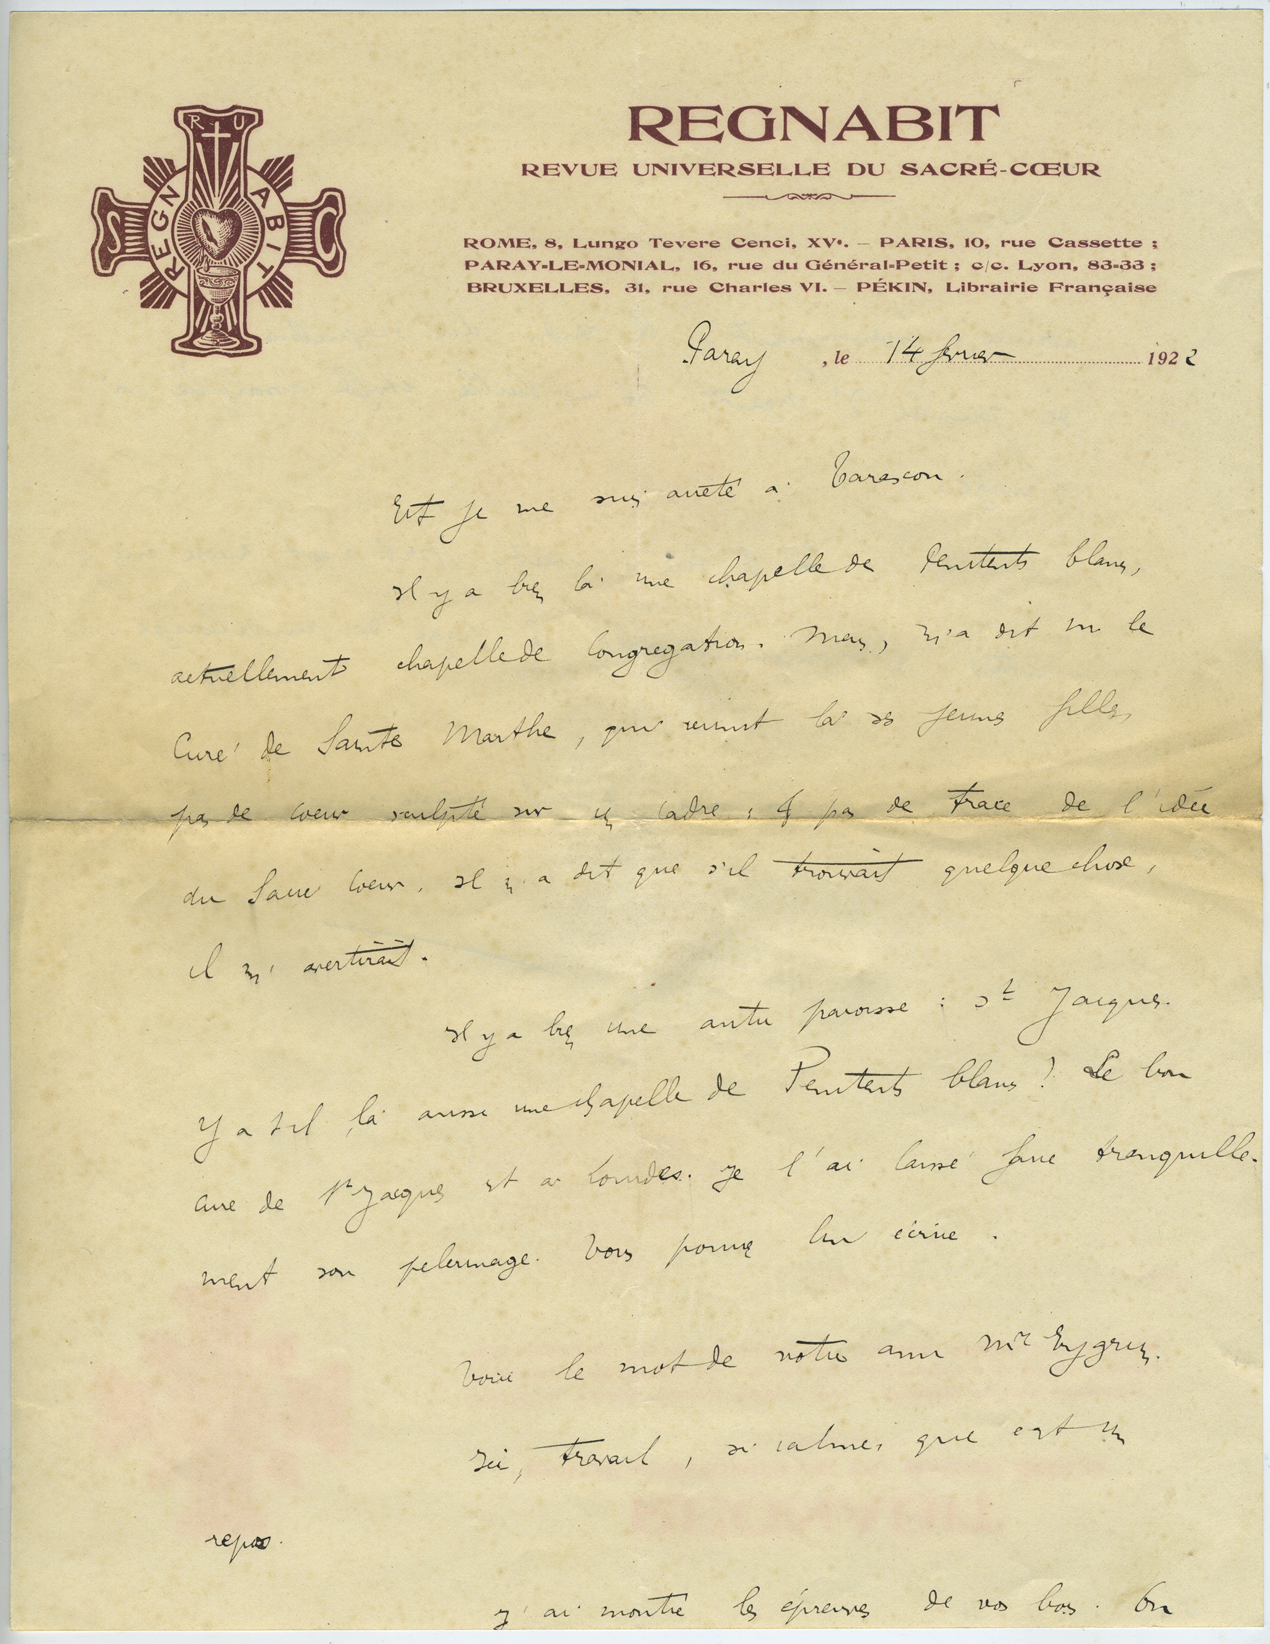 R U
S REGNABIT C
REGNABIT
REVUE UNIVERSELLE DU SACRÉ-CŒUR
ROME, 8, Lungo Tevere Cenci, XVe. — PARIS, 10, rue Cassette ;
PARAY-LE-MONIAL, 16, rue du Général-Petit ; c/c. Lyon, 83-33 ;
BRUXELLES, 31, rue Charles VI. — PÉKIN, Librairie Française
Paray , le 14 février 1922
Et je me suis arrêté à Tarascon.
Il y a bien là une chapelle de Penitents blancs,
actuellement chapelle de Congregation. Mais, m'a dit M le
Curé de Sainte Marthe, qui reunit là ses jeunes filles,
pas de coeur sculpté sur un cadre ; & pas de trace de l'idée
du Sacré Coeur. Il m'a dit que s'il trouvait quelque chose,
il m'avertirait.
Il y a bien une autre paroisse : St Jacques.
Y a t-il là aussi une chapelle de Penitents blancs ? Le bon
curé de St Jacques est à Lourdes. Je l'ai laissé faire tranquille-
ment son pelerinage. Vous pourrez lui écrire.
Voici le mot de notre ami Mr Eygun.
Ici, travail, si calme, que c'est un
repos.
J'ai montré les épreuves de vos bois. On